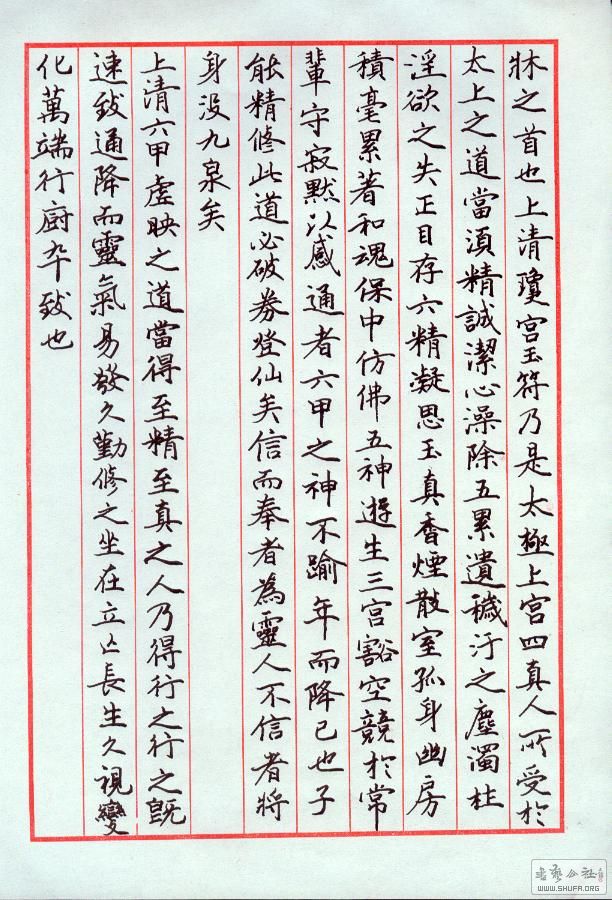 牀之首也上清瓊宮玉符乃是太極上宮四真人所受於
太上之道當須精誠潔心澡除五累遺穢汙之塵濁杜
淫欲之失正目存六精凝思玉真香煙散室孤身幽房
積毫累著和魂保中仿佛五神遊生三宮豁空競於常
輩守寂默以感通者六甲之神不踰年而降己也子
能精修此道必破券登仙矣信而奉者為靈人不信者將
身没九泉矣
上清六甲虛映之道當得至精至真之人乃得行之行之既
速致通降而靈氣易發久勤修之坐在立亡長生久視變
化萬端行廚卒致也
書藝公社
WWW.SHUFA.ORG